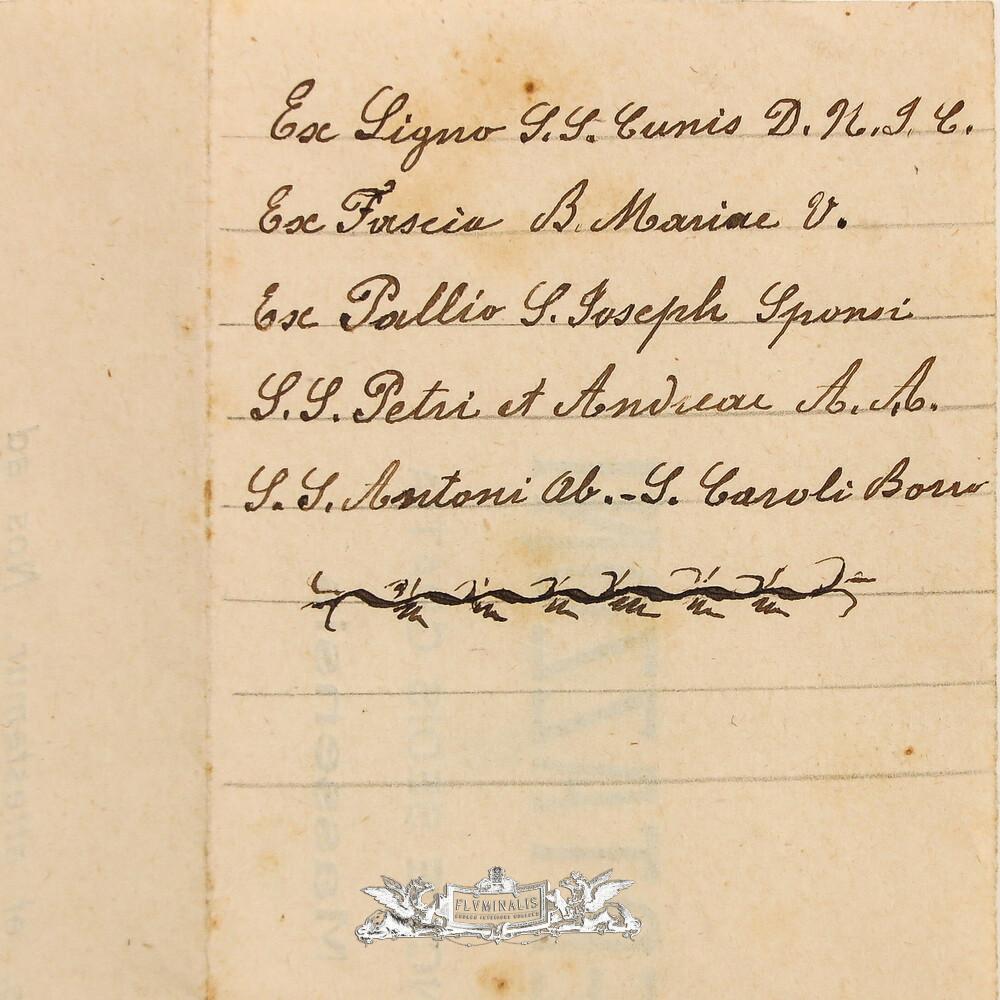 Ex Ligno S.S. Cunis D.N.J.C.
Ex Fascia B. Mariae V.
Ex Pallio S. Joseph Sponsi
S.S. Petri et Andreae A.A.
S.S. Antoni Ab.-S. Caroli Borro
FLVMINALIS